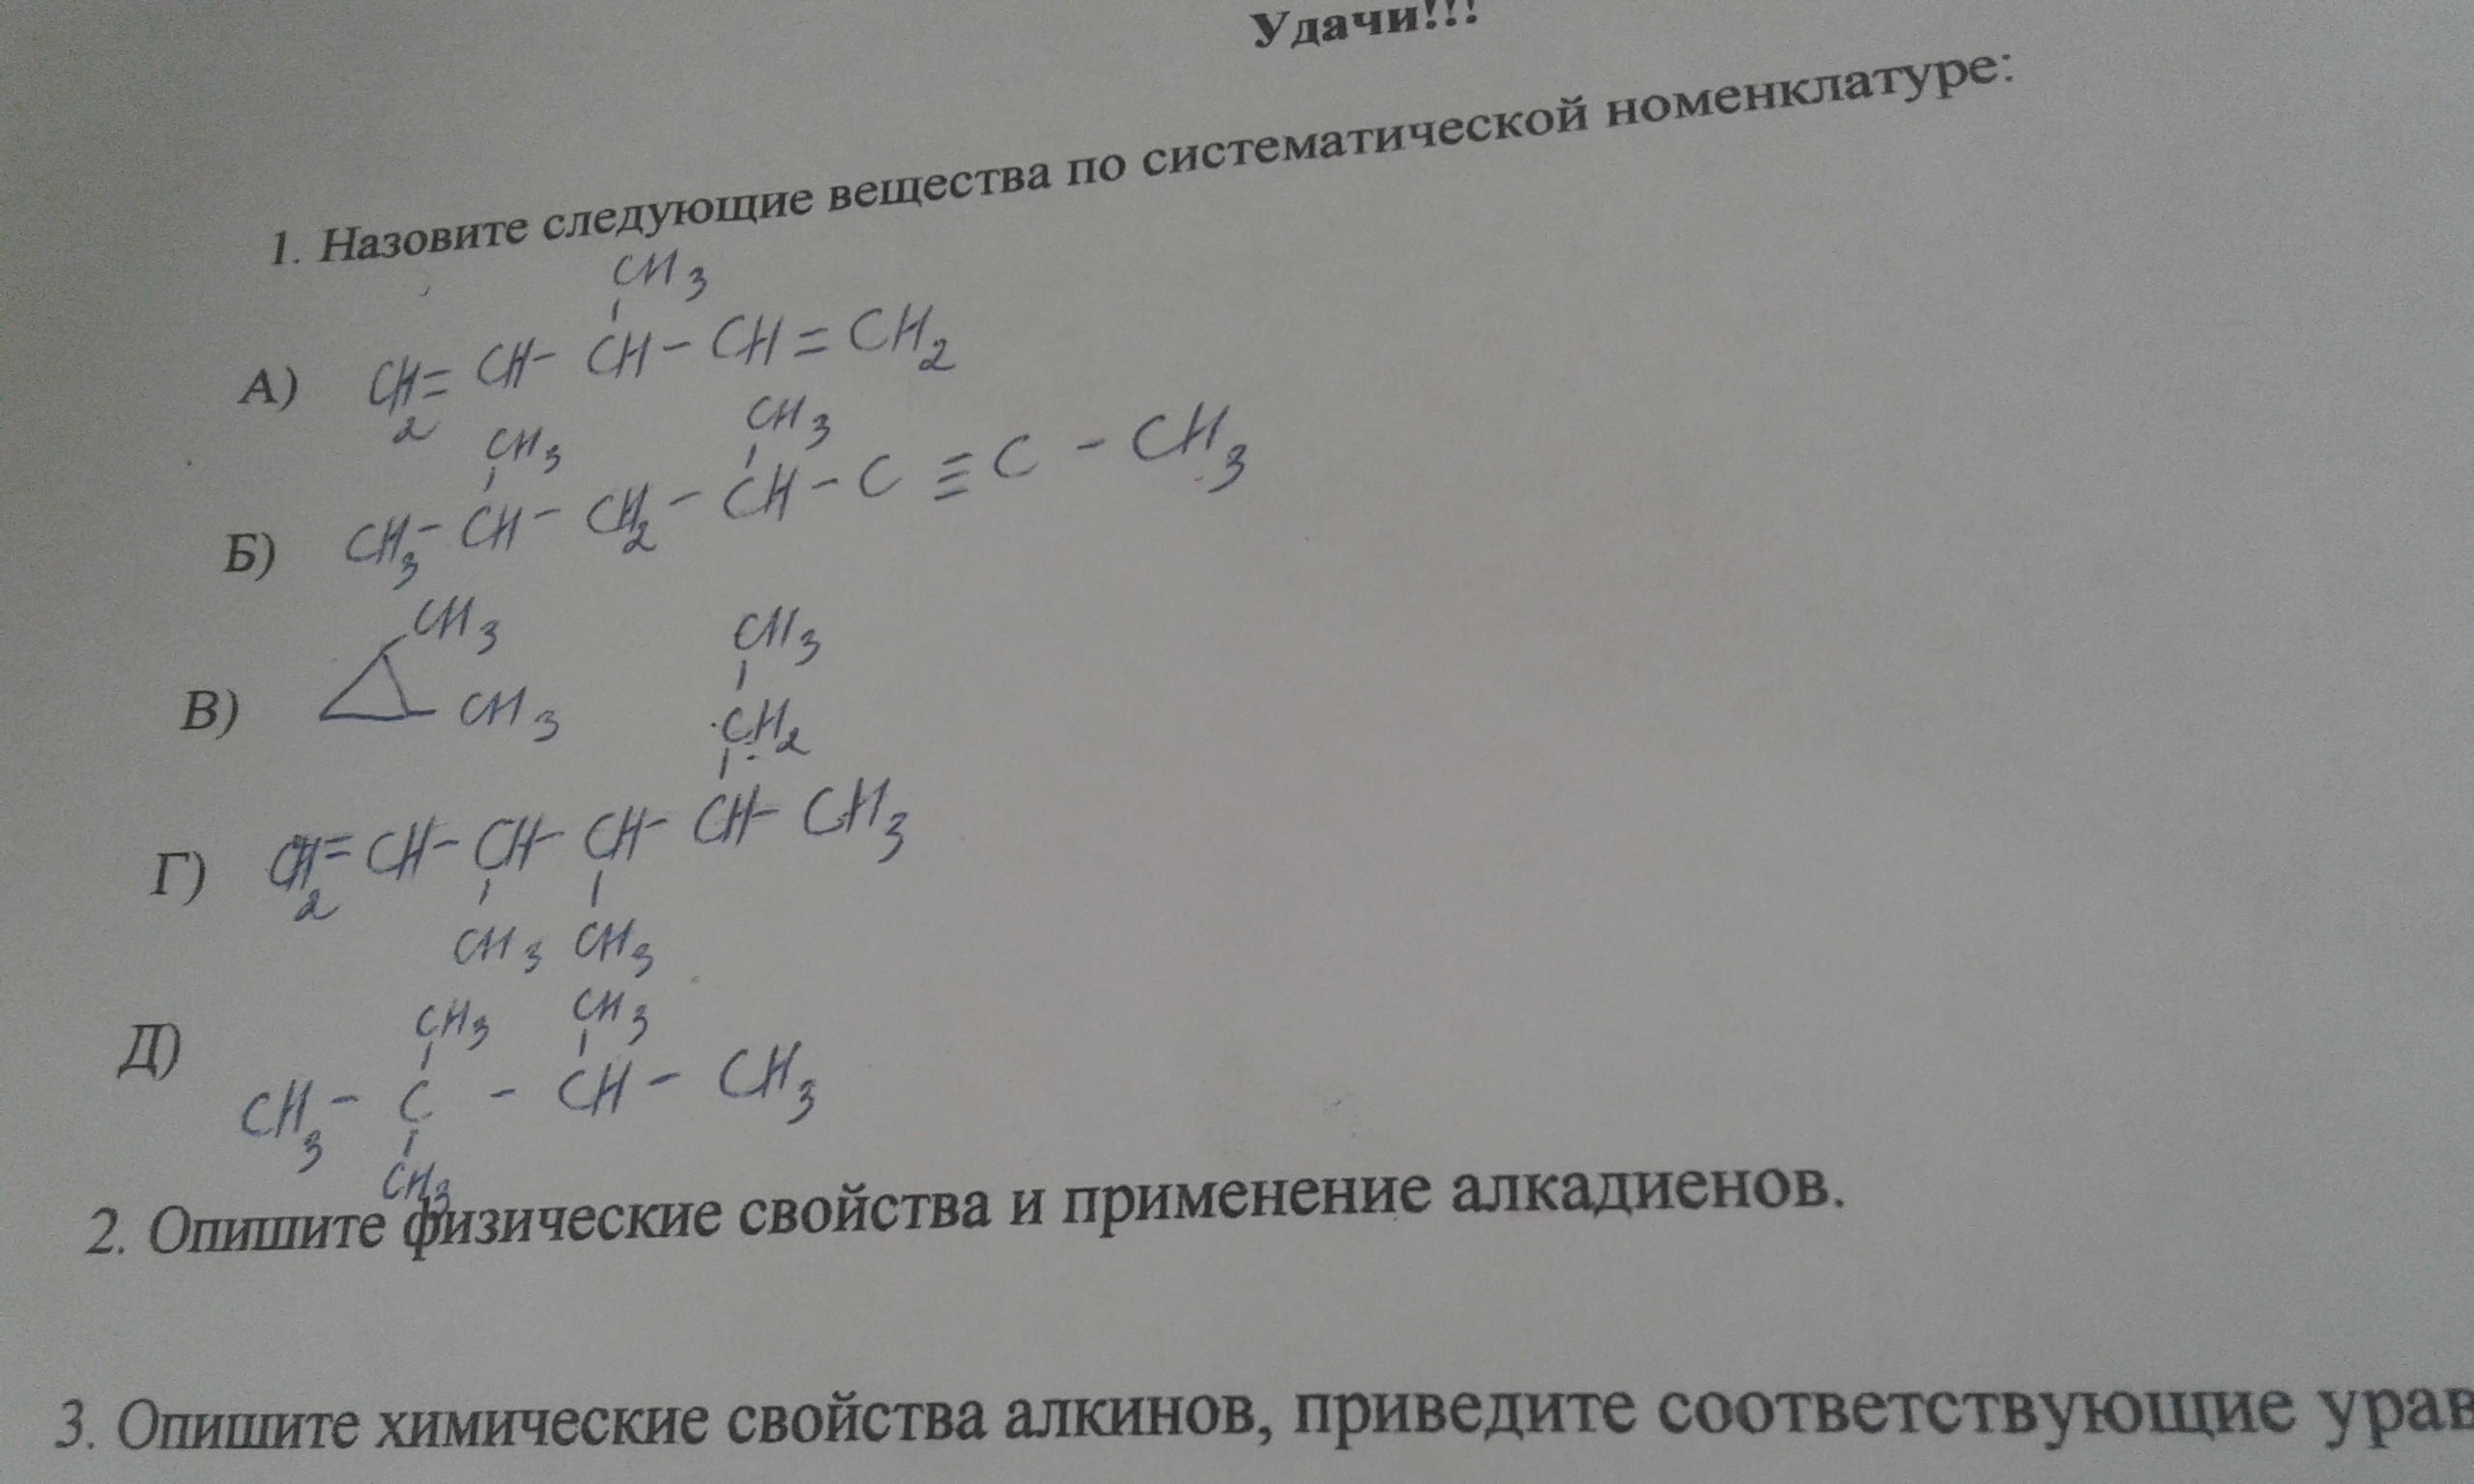 Удачи!!!
1. Назовите следующие вещества по систематической номенклатуре:
CH3
А) CH2=CH-CH-CH=CH2
CH3 CH3
Б) CH3-CH-CH2-CH-C≡C-CH3
CH3
В) CH3
CH3
CH2
Г) CH2=CH-CH-CH-CH-CH3
CH3 CH3
CH3 CH3
Д) CH3-C-CH-CH3
CH3
2. Опишите физические свойства и применение алкадиенов.
3. Опишите химические свойства алкинов, приведите соответствующие урав